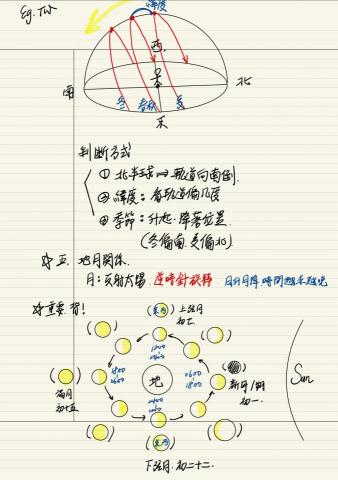 Eg. TW
緯度
西
南
北
冬 春秋 夏
東
判斷方式
① 北半球 ⇒ 軌道向南倒.
② 緯度：看軌道偏几度
③ 季節：升起、降落位置
(冬偏南,夏偏北)
五. 地月關係.
月：反射太陽. 逆時針旋轉 月升月降時間越來越晚
重要.背!
上弦月
初七
1200
1800
0600
地
0600
1800
新月/朔
初一
Sun
滿月
初十五
2400
下弦月.初二十二.